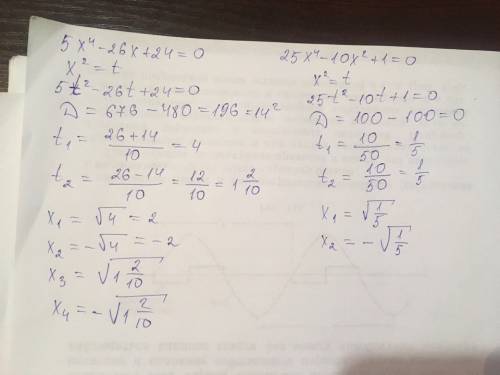 5x⁴-26x+24=0
x²=t
5t²-26t+24=0
D=676-480=196=14²
t₁=\frac{26+14}{10}=4
t₂=\frac{26-14}{10}=\frac{12}{10}=1\frac{2}{10}
x₁=√4=2
x₂=-√4=-2
x₃=\sqrt{1\frac{2}{10}}
x₄=-\sqrt{1\frac{2}{10}}
25x⁴-10x²+1=0
x²=t
25t²-10t+1=0
D=100-100=0
t₁=\frac{10}{50}=\frac{1}{5}
t₂=\frac{10}{50}=\frac{1}{5}
x₁=\sqrt{\frac{1}{5}}
x₂=-\sqrt{\frac{1}{5}}